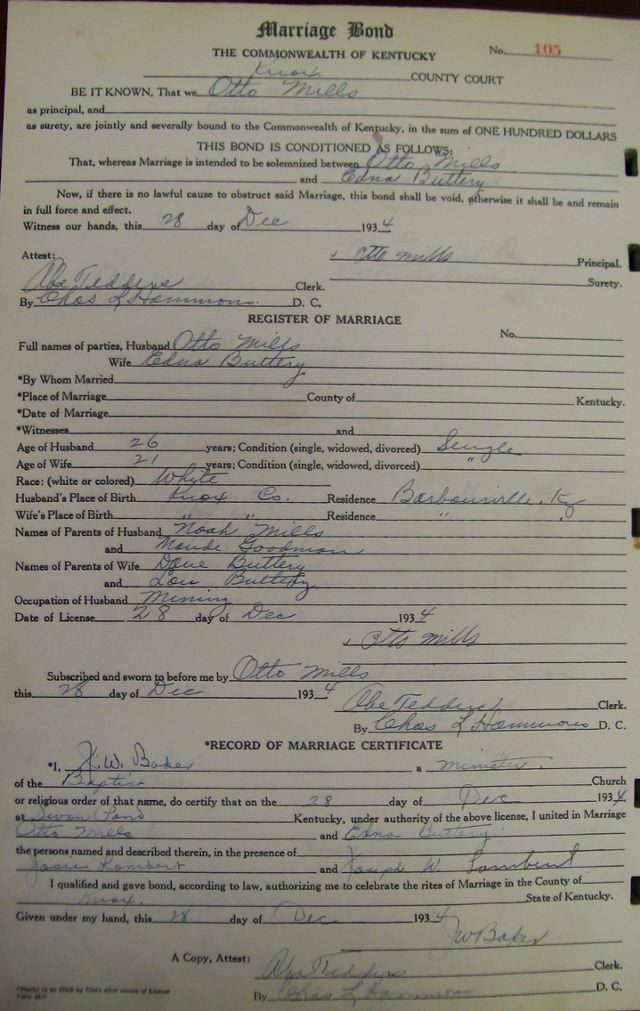 Marriage Bond
THE COMMONWEALTH OF KENTUCKY No. 105
Knox COUNTY COURT
BE IT KNOWN, That we Otto Mills
as principal, and
as surety, are jointly and severally bound to the Commonwealth of Kentucky, in the sum of ONE HUNDRED DOLLARS
THIS BOND IS CONDITIONED AS FOLLOWS:
That, whereas Marriage is intended to be solemnized between Otto Mills
and Edna Buttery
Now, if there is no lawful cause to obstruct said Marriage, this bond shall be void, otherwise it shall be and remain
in full force and effect.
Witness our hands, this 28 day of Dec 1934
Attest: Otto Mills Principal.
Abe Tedders Clerk. Surety.
By Chas L Hammons. D. C.
REGISTER OF MARRIAGE
No.
Full names of parties, Husband Otto Mills
Wife Edna Buttery
*By Whom Married
*Place of Marriage County of Kentucky.
*Date of Marriage
*Witnesses and
Age of Husband 26 years; Condition (single, widowed, divorced) Single
Age of Wife 21 years; Condition (single, widowed, divorced) "
Race: (white or colored) White
Husband's Place of Birth Knox Co. Residence Barbourville, Ky
Wife's Place of Birth " " Residence " "
Names of Parents of Husband Noah Mills
and Maude Goodman
Names of Parents of Wife Dave Buttery
and Lou Buttery
Occupation of Husband Mining
Date of License 28 day of Dec 1934
Otto Mills
Subscribed and sworn to before me by Otto Mills
this 28 day of Dec 1934
Abe Tedders Clerk.
By Chas L Hammons D. C.
*RECORD OF MARRIAGE CERTIFICATE
*I, J.W. Baker a minister.
of the Baptist Church
or religious order of that name, do certify that on the 28 day of Dec 1934
at Swan Pond Kentucky, under authority of the above license, I united in Marriage
Otto Mills and Edna Buttery
the persons named and described therein, in the presence of
Lambert and Joseph W. Lambert
I qualified and gave bond, according to law, authorizing me to celebrate the rites of Marriage in the County of
Knox. State of Kentucky.
Given under my hand, this 28 day of Dec 1934
JW Baker
A Copy, Attest: Abe Tedders Clerk.
By Chas L Hammons D. C.
*Blanks to be filled by Clerk after return of License